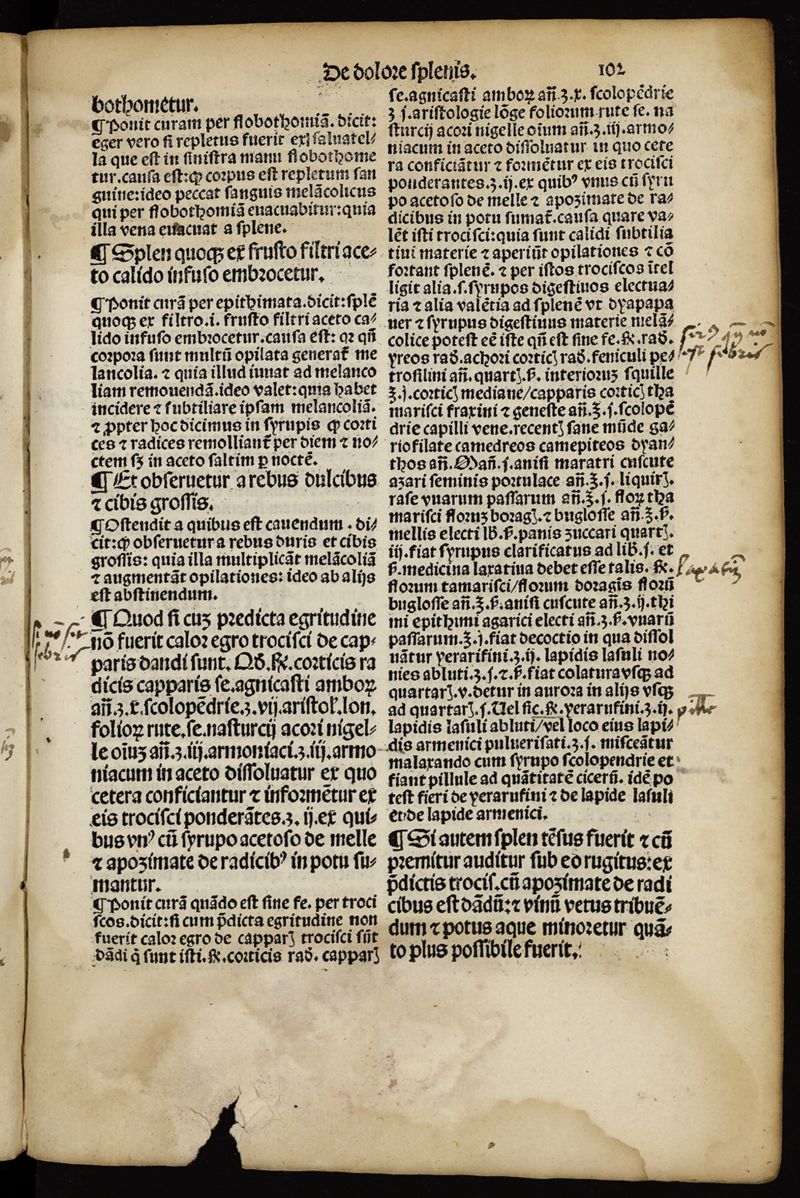 De dolore splenis.
102
bothometur.
¶Ponit curam per flobothomiā. dicit:
eger vero si repletus fuerit ex saluatel⸗
la que est in sinistra manu flobothome
tur. causa est: ꝙ corpus est repletum san
guine: ideo peccat sanguis melācolicus
qui per flobothomiā euacuabitur: quia
illa vena euacuat a splene.
¶Splen quoqꝫ ex frusto filtri ace⸗
to calido infuso embrocetur.
¶Ponit curā per epithimata. dicit: splē
quoqꝫ ex filtro .i. frusto filtri aceto ca⸗
lido infuso embrocetur. causa est: qꝛ qñ
corpora sunt multū opilata generat᷑ me
lancolia. ⁊ quia illud iuuat ad melanco
liam remouendā. ideo valet: quia habet
incidere ⁊ subtiliare ipsam melancoliā.
⁊ ꝓpter hoc dicimus in syrupis ꝙ corti
ces ⁊ radices remolliant᷑ per diem ⁊ no⸗
ctem sꝫ in aceto saltim ꝑ noctē.
¶Et obseruetur a rebus dulcibus
⁊ cibis grossis.
¶Ostendit a quibus est cauendum. di⸗
cit: ꝙ obseruetur a rebus duris et cibis
grossis: quia illa multiplicāt melācoliā
⁊ augmentāt opilationes: ideo ab alijs
est abstinendum.
¶Quod si cuꝫ predicta egritudine
nō fuerit calor egro trocisci de cap⸗
paris dandi sunt. Qd. ℞. corticis ra
dicis capparis se. agnicasti amboꝝ
añ.ʒ.x. scolopēdrie.ʒ.vij. aristol. lon.
folioꝝ rute. se. nasturcij acori nigel⸗
le oiuꝫ añ.ʒ.iij. armoniaci.ʒ.iij. armo
niacum in aceto dissoluatur ex quo
cetera conficiantur ⁊ informētur ex
eis trocisci ponderātes.ʒ. ij. ex qui⸗
bus vnꝰ cū syrupo acetoso de melle
⁊ apozimate de radicibꝰ in potu su⸗
mantur.
¶Ponit curā quādo est sine fe. per troci
scos. dicit: si cum p̄dicta egritudine non
fuerit calor egro de capparꝭ trocisci sūt
dādi q̄ sunt isti. ℞. corticis rad. capparꝭ
se. agnicasti amboꝝ añ.ʒ.x. scolopēdrie
ʒ ſ. aristologie lōge foliorum rute se. na
sturcij acori nigelle oium añ.ʒ.iij. armo⸗
niacum in aceto dissoluatur in quo cete
ra conficiātur ⁊ formētur ex eis trocisci
ponderantes.ʒ.ij. ex quibꝰ vnus cū syru
po acetoso de melle ⁊ apozimate de ra⸗
dicibus in potu sumat᷑. causa quare va⸗
lēt isti trocisci: quia sunt calidi subtilia
tiui materie ⁊ aperiūt opilationes ⁊ cō
fortant splenē. ⁊ per istos trociscos ītel
ligit alia .s. syrupos digestiuos electua⸗
ria ⁊ alia valētia ad splenē vt dyapapa
uer ⁊ syrupus digestiuus materie melā⸗
colice potest eē iste qñ est sine fe. ℞. rad.
yreos rad. achori corticꝭ rad. feniculi pe⸗
trosilini añ. quartꝭ. ß. interioruꝫ squille
℥.j. corticꝭ mediane/capparis corticꝭ tha
marisci fraxini ⁊ geneste añ.℥.ſ. scolopē
drie capilli vene. recentꝭ sane mūde ga⸗
riofilate camedreos camepiteos dyan⸗
thos añ. Mañ. ſ. anisi maratri cuscute
azari seminis portulace añ.℥.ſ. liquirꝭ.
rase vuarum passarum añ.℥.ſ. floꝝ tha
marisci floruꝫ boragꝭ. ⁊ buglosse añ.℥.ß.
mellis electi lb̄.ß. panis zuccari quartꝭ.
iij. fiat syrupus clarificatus ad lib̄.ſ. et
ß. medicina laxatiua debet esse talis. ℞.
florum tamarisci/florum boragīs florū
buglosse añ.℥.ß. anisi cuscute añ.ʒ.ij. thi
mi epithimi agarici electi añ.ʒ.ß. vuarū
passarum.℥.j. fiat decoctio in qua dissol
uātur yerarifini.ʒ.ij. lapidis lasuli no⸗
nies abluti.ʒ.ſ.⁊.ß. fiat colatura vsqꝫ ad
quartarꝭ.v. detur in aurora in alijs vsqꝫ
ad quartarꝭ.ſ. Uel sic. ℞. yerarufini.ʒ.ij.
lapidis lasuli abluti/vel loco eius lapi⸗
dis armenici puluerisati.ʒ.ſ. misceātur
malaxando cum syrupo scolopendrie et
fiant pillule ad quātitatē cicerū. idē po
test fieri de yerarufini ⁊ de lapide lasuli
et de lapide armenici.
¶Si autem splen tēsus fuerit ⁊ cū
premitur auditur sub eo rugitus: ex
p̄dictis trocis. cū apozimate de radi
cibus est dādū: ⁊ vinū vetus tribuē⸗
dum ⁊ potus aque minoretur quā⸗
to plus possibile fuerit.